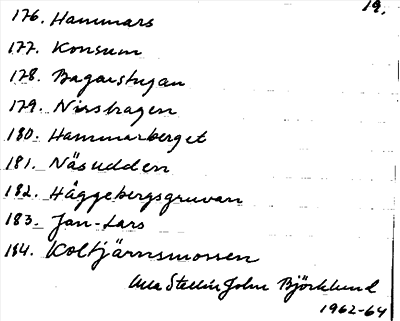 19.
176. Hammars
177. Konsum
178. Bagarstugan
179. Nisshagen
180. Hammarberget
181. Näsudden
182. Häggebergsgruvan
183. Jan-Lars
184. Koltjärnsmossen
John Björklund
1962-64